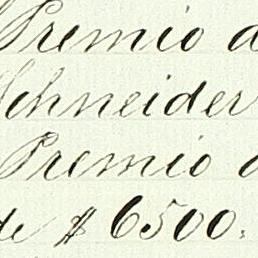 Premio d
Schneider
Premio d
de $ 6500.